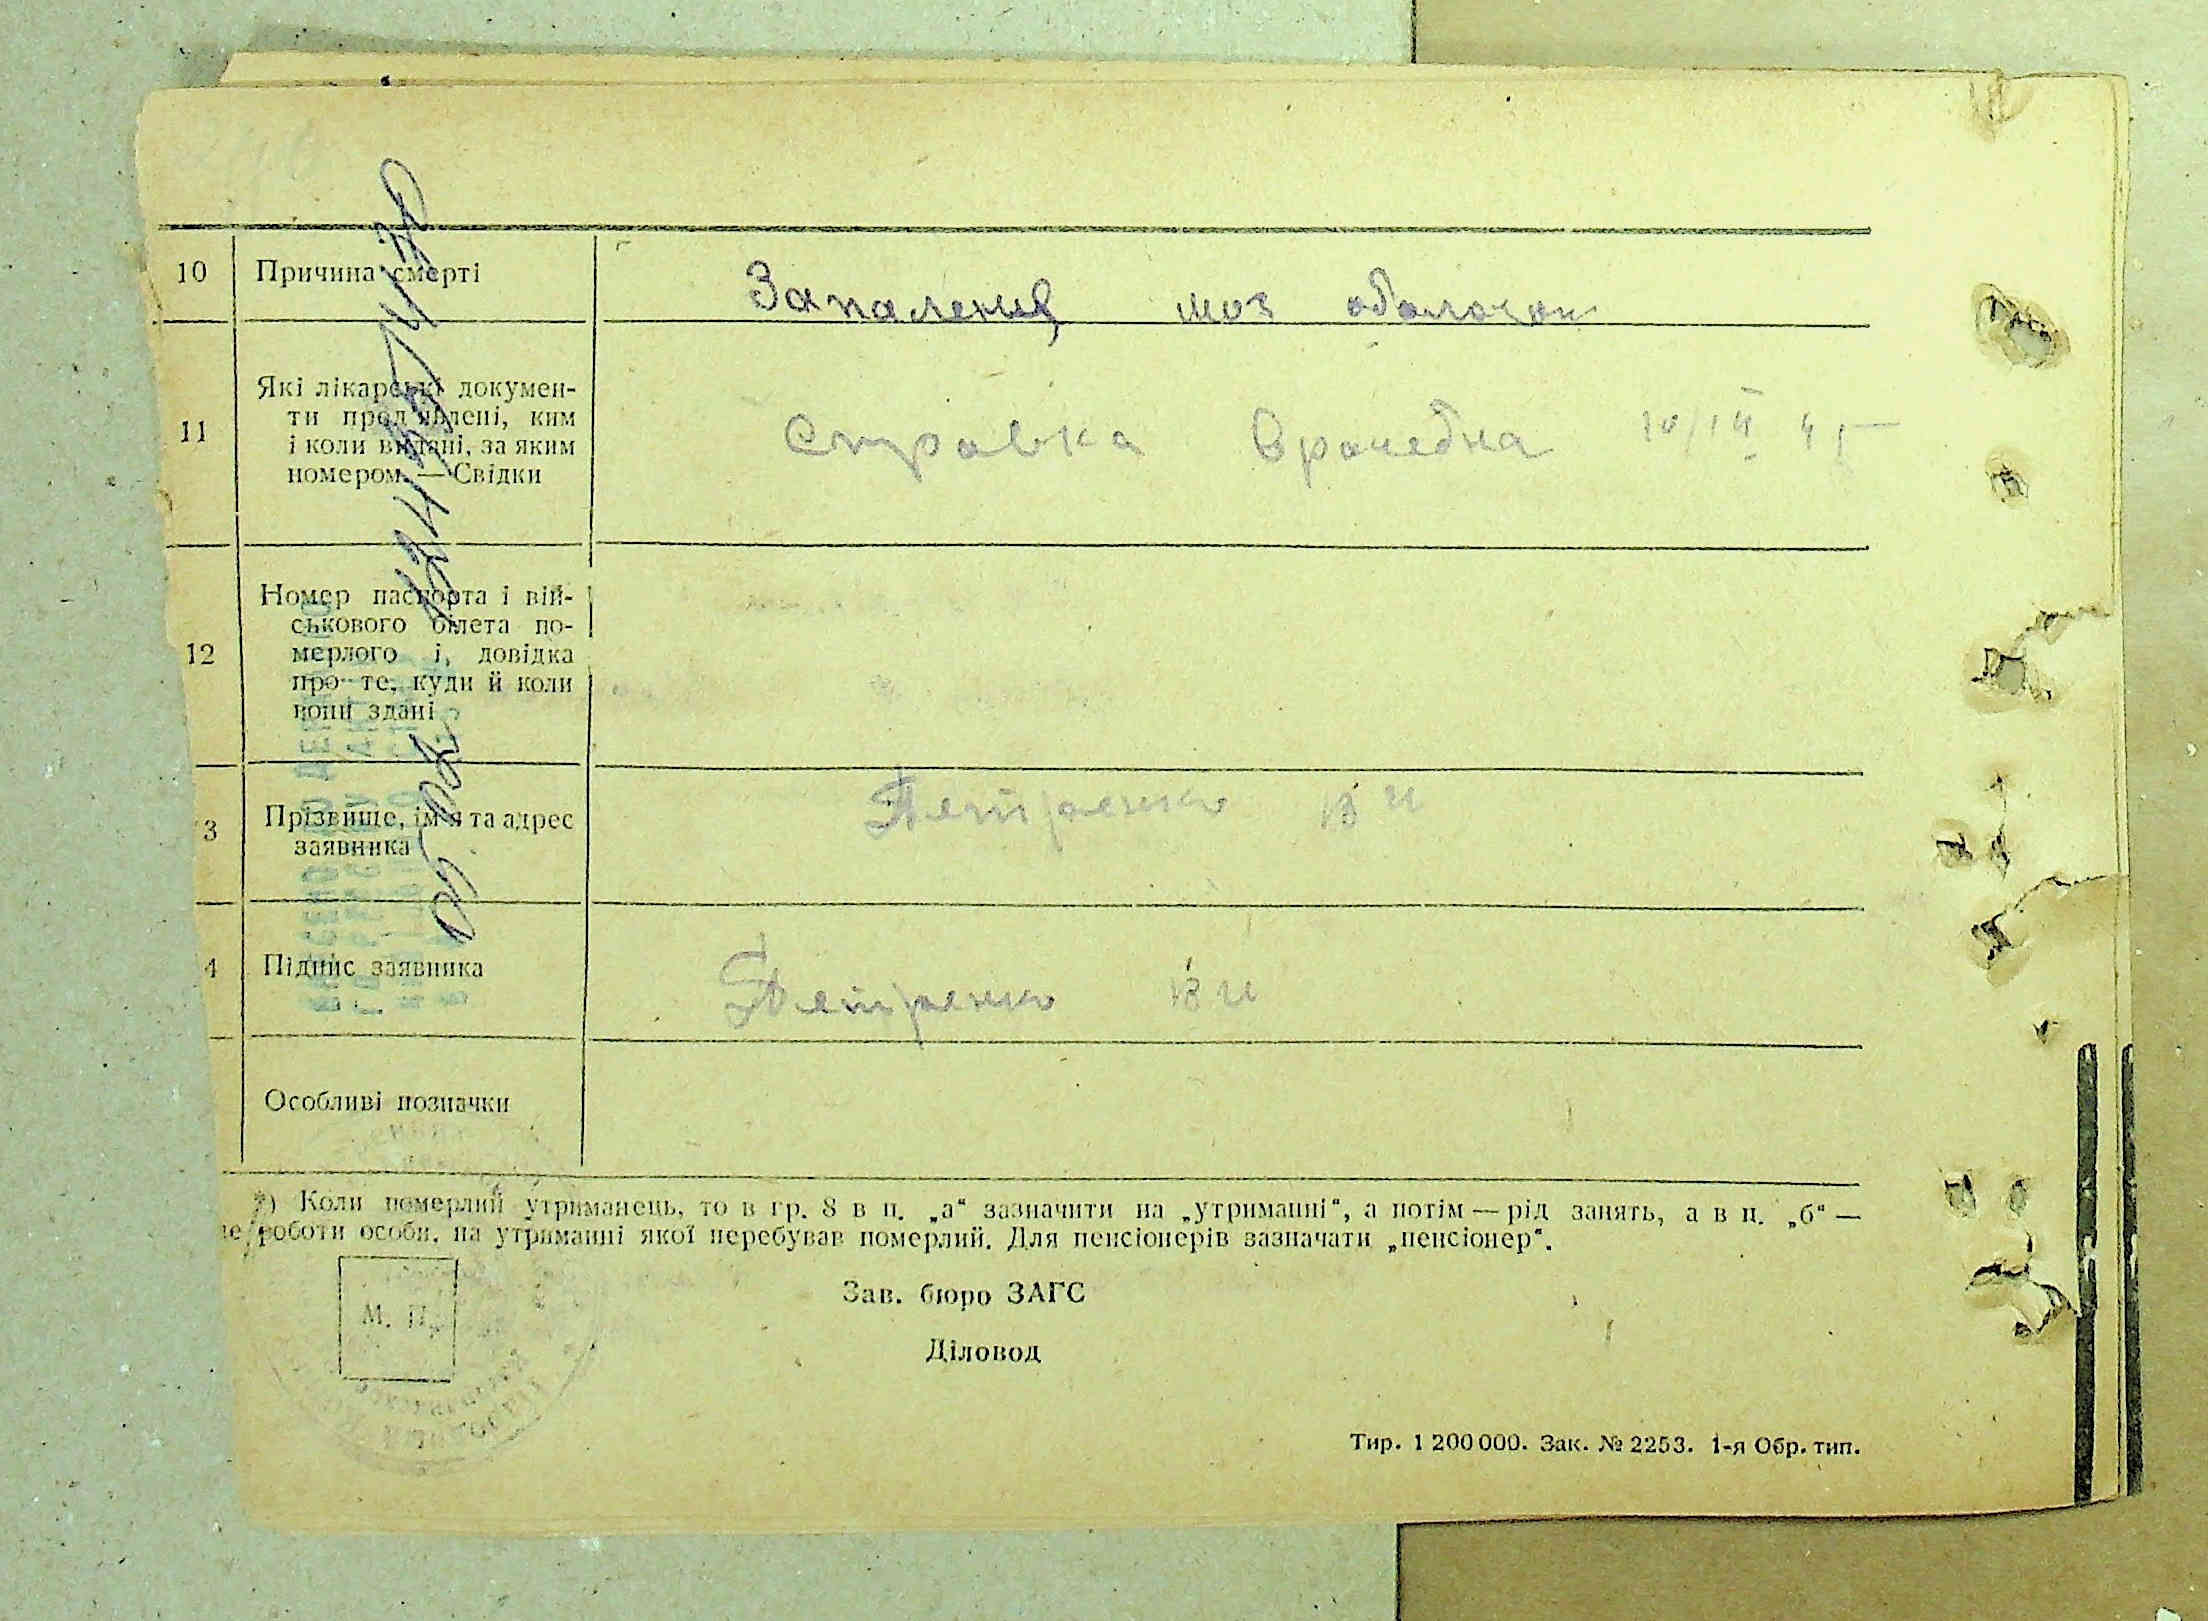 10 Причина смерті Запаления моз оболочок
11 Які лікарські докумен-
ти пред'явлені, ким
і коли видані, за яким
номером. — Свідки
Справка врачебна 10/IV 45
12 Номер паспорта і вій-
ськового білета по-
мерлого і, довідка
про те, куди й коли
вони здані
3 Прізвище, ім'я та адрес
заявника
Петренко В И
4 Підпис заявника Петренко В И
Особливі позначки
*) Коли померлий утриманець, то в гр. 8 в п. „а“ зазначити на „утриманні“, а потім — рід занять, а в п. „б“ —
це роботи особи, на утриманні якої перебував померлий. Для пенсіонерів зазначати „пенсіонер“.
М. П.
Зав. бюро ЗАГС
Діловод
Тир. 1 200 000. Зак. № 2253. 1-я Обр. тип.